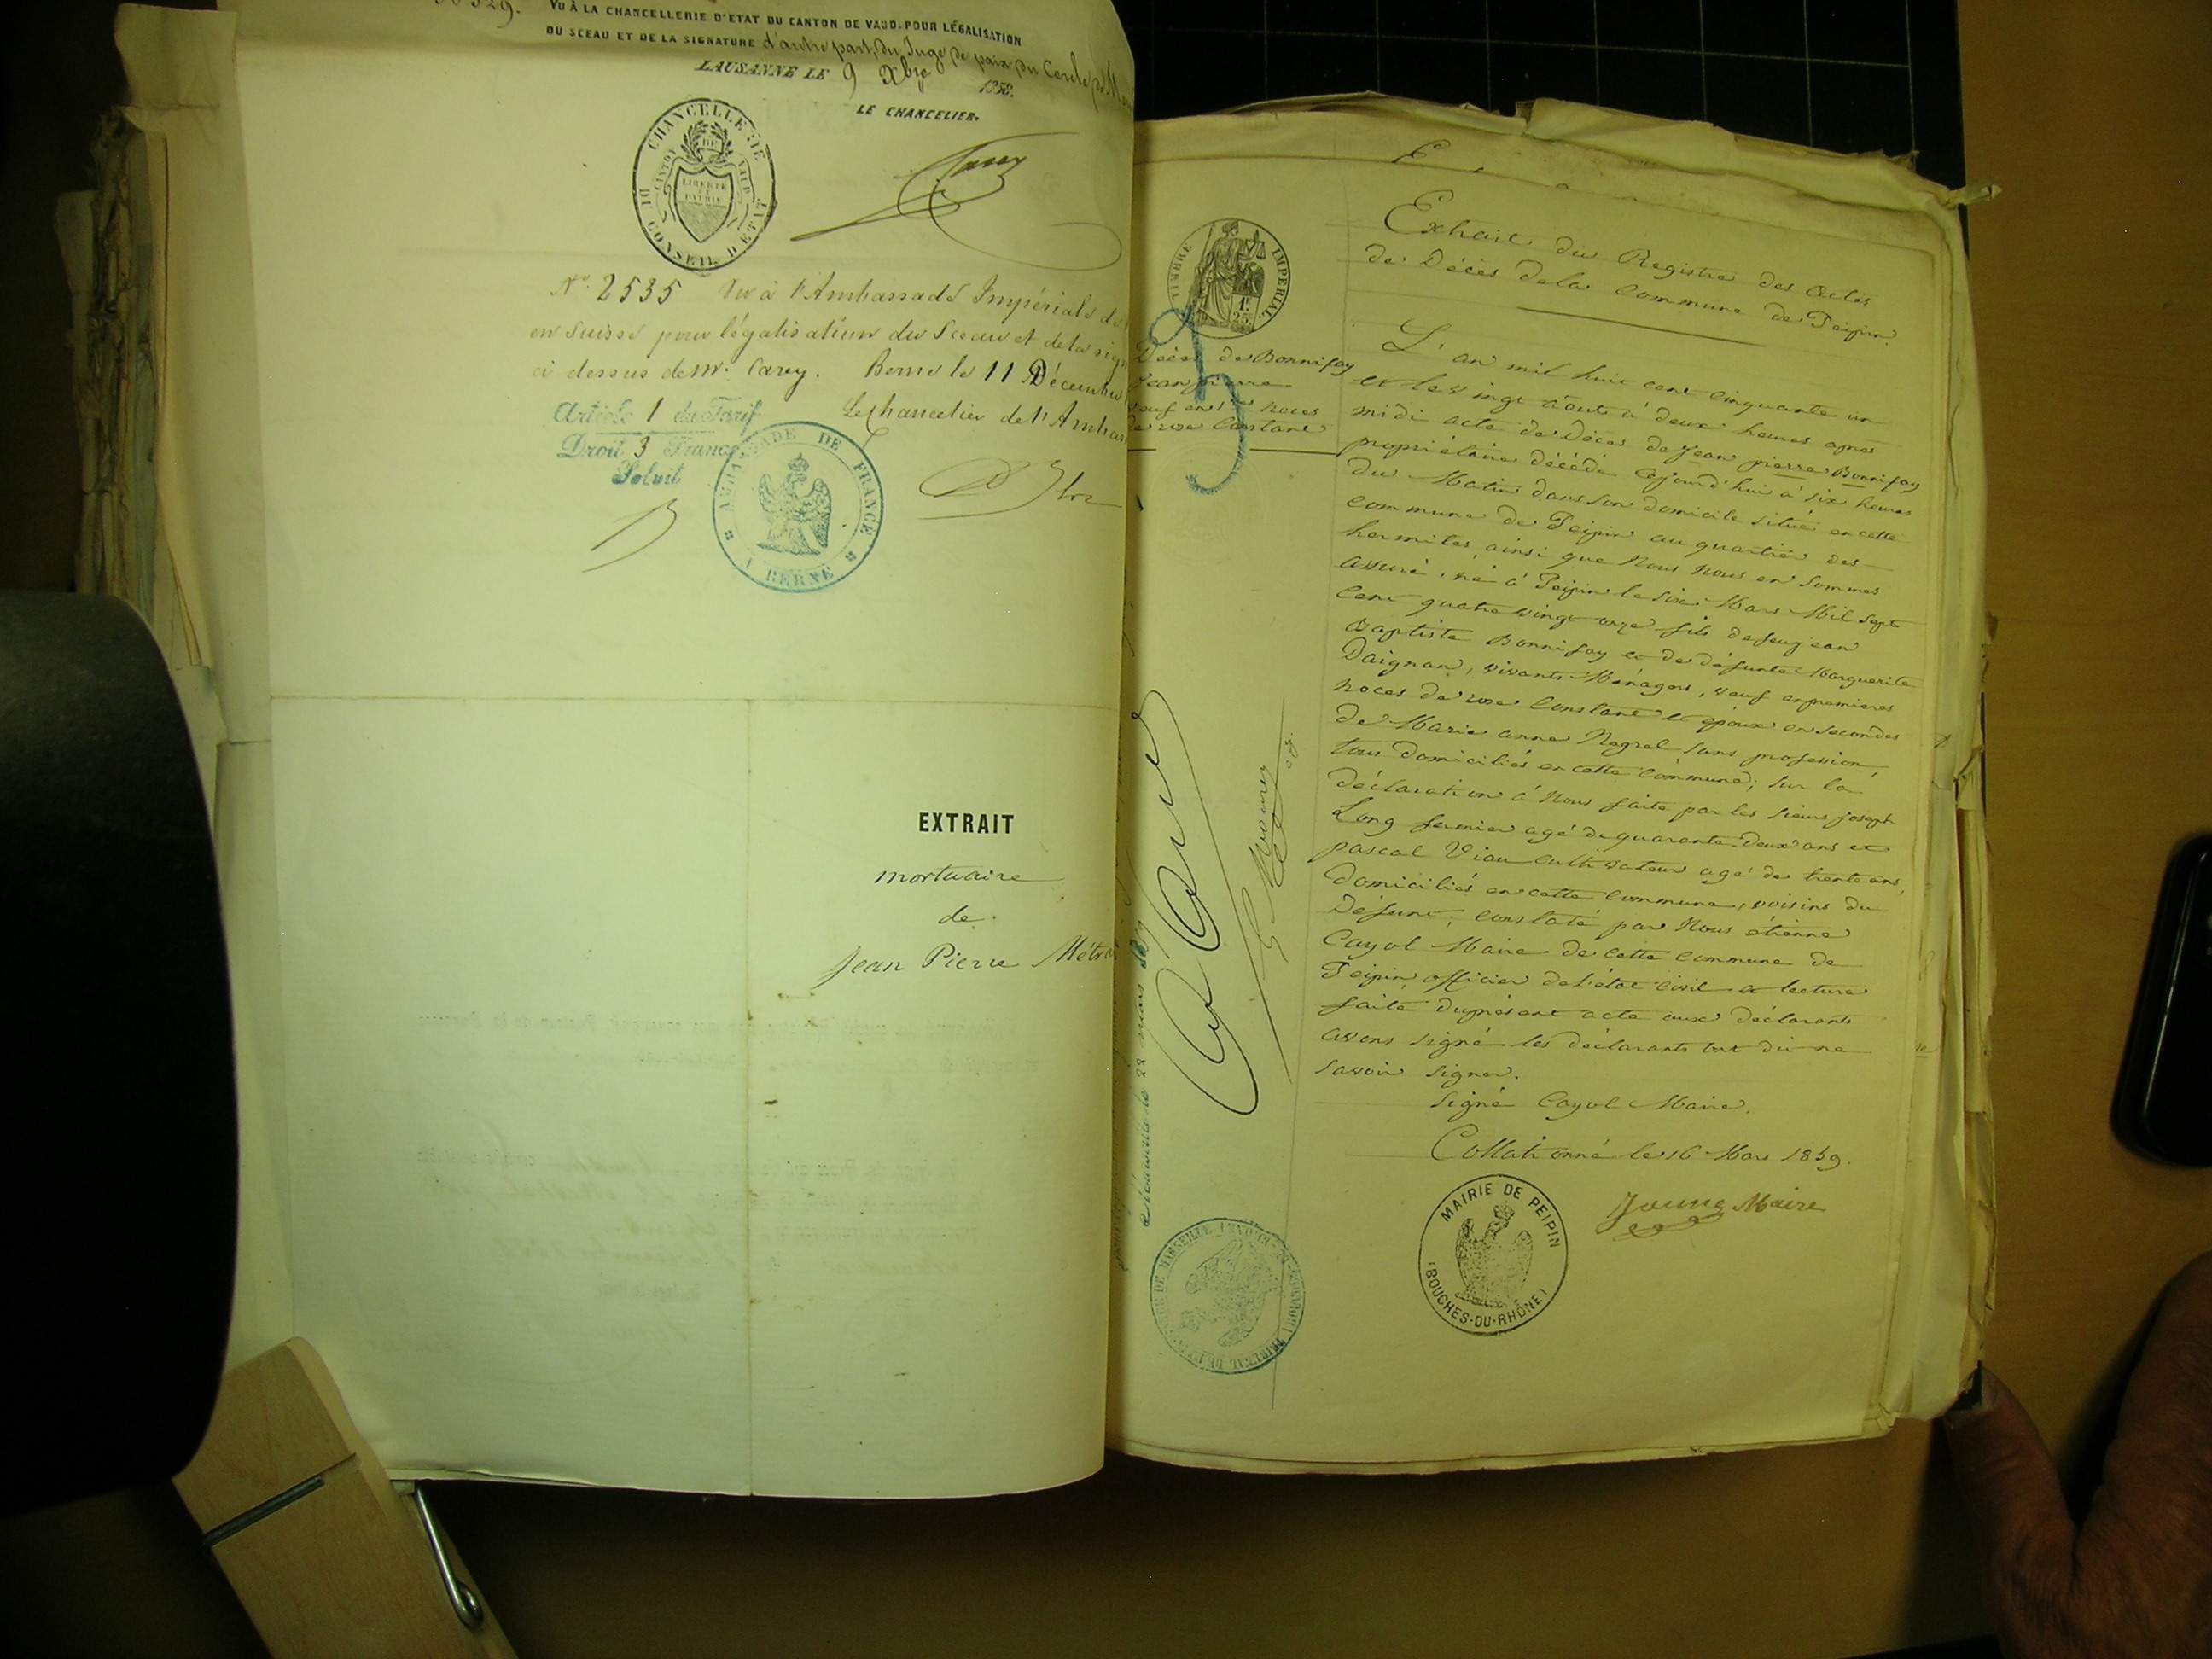 VU À LA CHANCELLERIE D'ETAT DU CANTON DE VAUD, POUR LÉGALISATION
DU SCEAU ET DE LA SIGNATURE d'autre part, du Juge de paix du Cercle de
LAUSANNE LE 9 Xbre 1858.
LE CHANCELIER.
CHANCELLERIE DU CONSEIL D'ETAT
CANTON DE VAUD
LIBERTÉ ET PATRIE
Carey
No. 2535 Vu à l'Ambassade Impériale de
en Suisse pour légalisation du Sceau et de la sign
ci-dessus de Mr. Carey. Berne le 11 Décembre
Article 1 du Tarif Le Chancelier de l'Ambas
Droit 3 Francs
Soluit
AMBASSADE DE FRANCE
A BERNE
EXTRAIT
mortuaire
de
Jean Pierre Métr
TIMBRE IMPERIAL
1F 25c
Extrait du Registre des actes
de Décès de la Commune de Peipin.
Décès de Bonnifay
Jean pierre
veuf en 1res noces
de rose Constant
L'an mil huit cent cinquante un
et le vingt août à deux heures après
midi acte de Décès de Jean pierre Bonnifay
propriétaire décédé aujourd'hui à six heures
du Matin dans son domicile situé en cette
commune de Peipin au quartier des
hermites, ainsi que Nous nous en sommes
assuré, né à Peipin le six Mars Mil sept
cent quatre vingt onze fils de feu jean
Baptiste Bonnifay et de défunte Marguerite
Daignan, vivants Ménagers, veuf en premieres
noces de rose Constant et époux en secondes
de Marie anne Negrel sans profession,
tous domiciliés en cette commune; sur la
déclaration à Nous faite par les sieurs joseph
Long fermier agé de quarante deux ans et
pascal Viau cultivateur agé de trente ans,
domiciliés en cette commune, voisins du
Défunt; constaté par Nous étienne
Cayol Maire de cette commune de
Peipin officier de l'état civil et lecture
faite du présent acte aux déclarants
avons signé les déclarants ont dit ne
savoir signer.
Signé Cayol Maire.
Collationné le 16 Mars 1859.
Maire
MAIRIE DE PEIPIN
(BOUCHES-DU-RHÔNE)